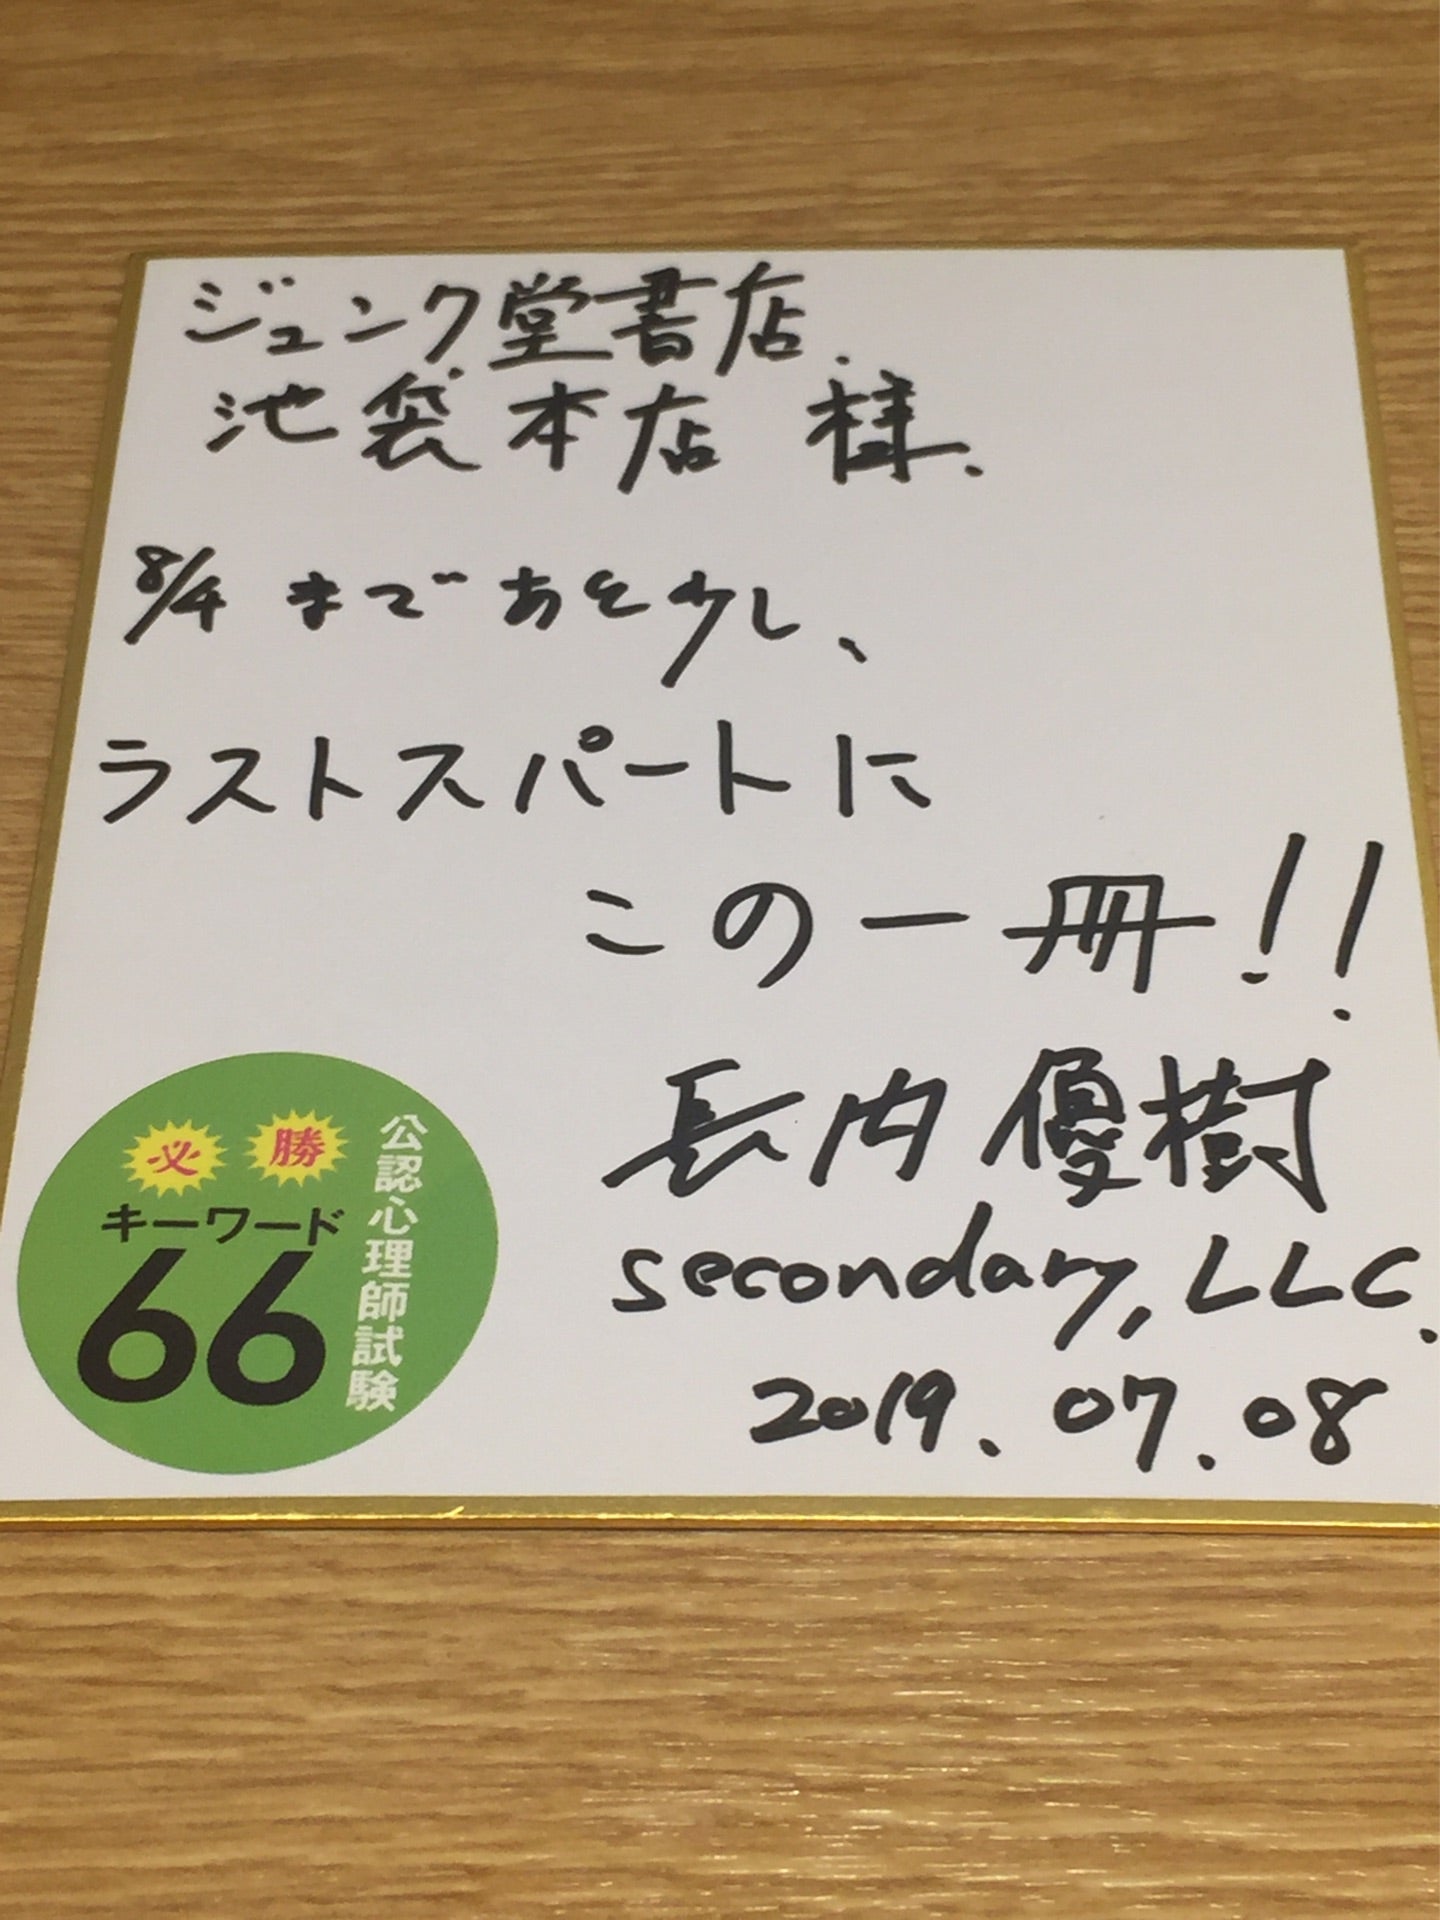 ジュンク堂書店.
池袋本店 様.
8/4 まで あと少し、
ラストスパートに
この一冊!!
長内 優樹
secondary, LLC.
2019.07.08
必勝
キーワード
66
公認心理師試験